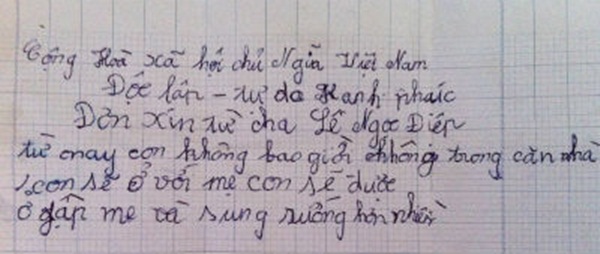 Cộng Hoà xã hội chủ Ngĩa Việt Nam
Độc lập - tự do Hanh phaíc
Đơn xin từ cha Lê Ngọc Diếp
từ nay con không bao giờ không trong căn nhà
con sẽ ở với mẹ con sẽ được
ở gần mẹ và sung sướng hơn nhiều